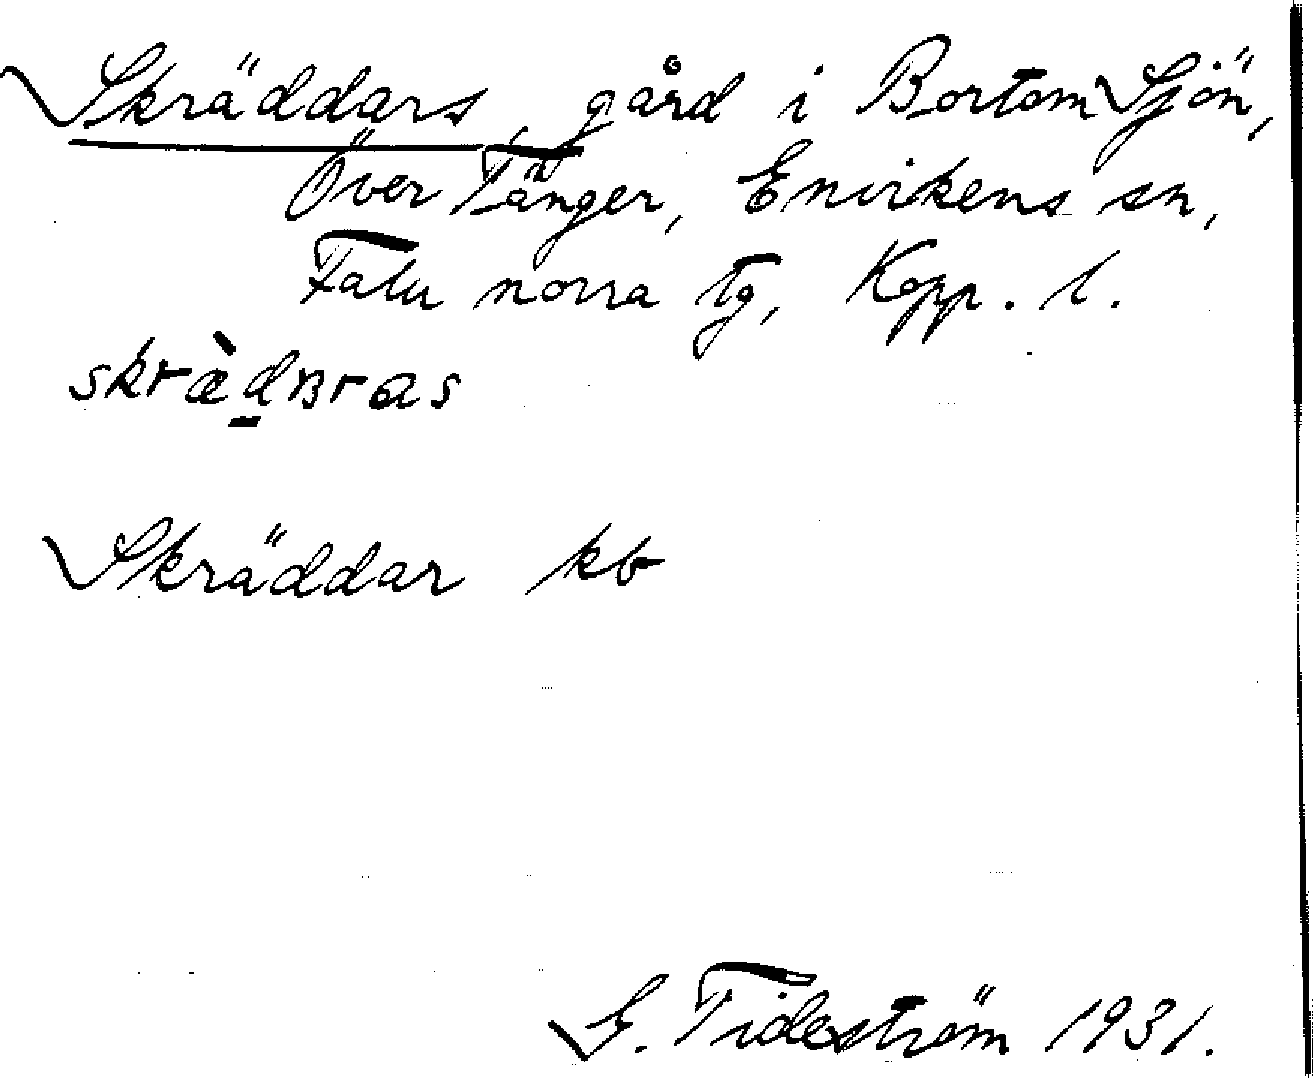 Skräddars, gård i Bortom Sjön,
Över Tänger, Envikens sn,
Falu norra tg, Kopp. l.
skræ̀d̲ʙras
Skräddar kb
G. Tideström 1931.